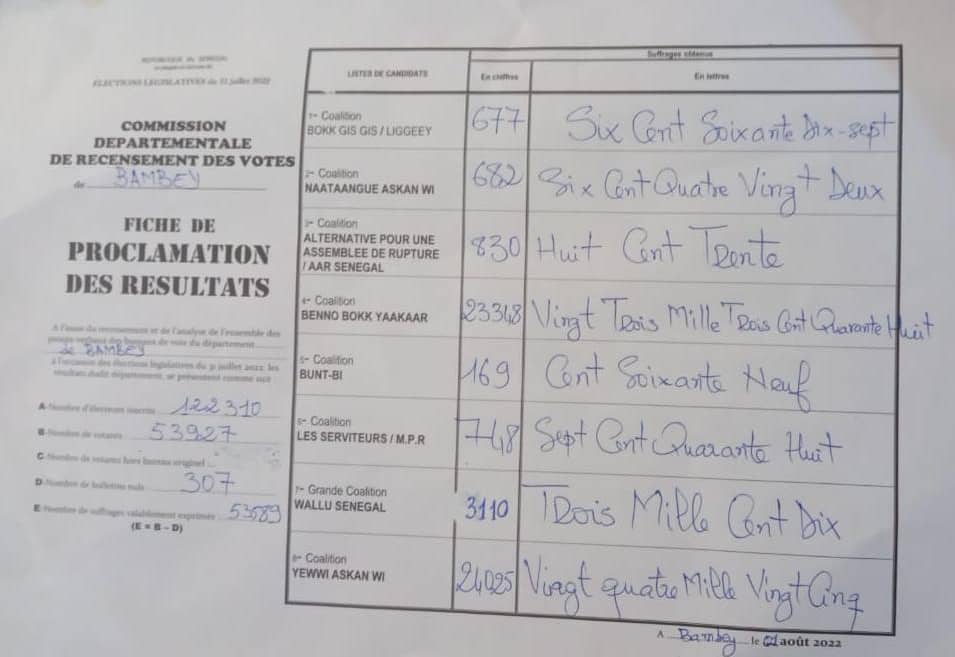 REPUBLIQUE DU SENEGAL
ELECTIONS LEGISLATIVES du 31 juillet 2022
COMMISSION
DEPARTEMENTALE
DE RECENSEMENT DES VOTES
de BAMBEY
FICHE DE
PROCLAMATION
DES RESULTATS
A l'issue du recensement et de l'analyse de l'ensemble des
procès verbaux des bureaux de vote du département
de BAMBEY
à l'occasion des élections législatives du 31 juillet 2022, les
résultats dudit département, se présentent comme suit :
A-Nombre d'électeurs inscrits 122310
B-Nombre de votants 53927
C-Nombre de votants hors bureau originel ...
D-Nombre de bulletins nuls 307
E-Nombre de suffrages valablement exprimés 53589
(E = B - D)
LISTES DE CANDIDATS
Suffrages obtenus
En chiffres
En lettres
1- Coalition
BOKK GIS GIS / LIGGEEY
677
Six Cent Soixante Dix-sept
2- Coalition
NAATAANGUE ASKAN WI
682
Six Cent Quatre Vingt Deux
3- Coalition
ALTERNATIVE POUR UNE
ASSEMBLEE DE RUPTURE
/ AAR SENEGAL
830
Huit Cent Trente
4- Coalition
BENNO BOKK YAAKAAR
23348
Vingt Trois Mille Trois Cent Quarante Huit
5- Coalition
BUNT-BI
169
Cent Soixante Neuf
6- Coalition
LES SERVITEURS / M.P.R
748
Sept Cent Quarante Huit
7- Grande Coalition
WALLU SENEGAL
3110
Trois Mille Cent Dix
8- Coalition
YEWWI ASKAN WI
24025
Vingt quatre Mille Vingt Cinq
A Bambey le 01 août 2022